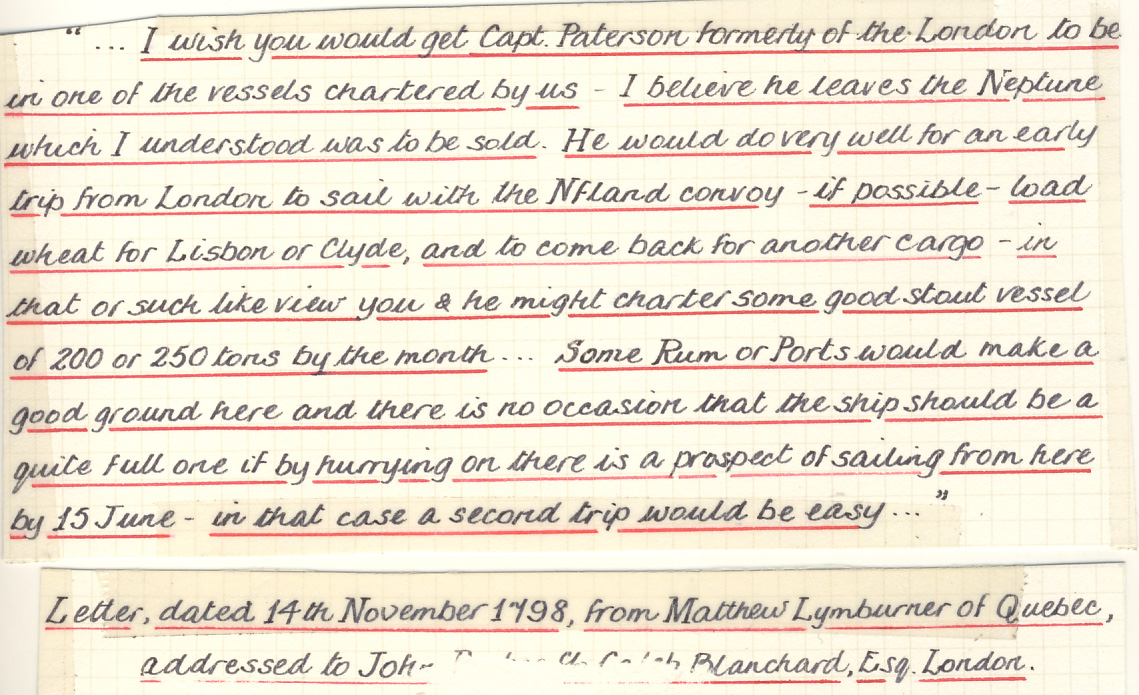 "... I wish you would get Capt. Paterson formerly of the London to be
in one of the vessels chartered by us - I believe he leaves the Neptune
which I understood was to be sold. He would do very well for an early
trip from London to sail with the Nfland convoy - if possible - load
wheat for Lisbon or Clyde, and to come back for another cargo - in
that or such like view you & he might charter some good stout vessel
of 200 or 250 tons by the month ... Some Rum or Ports would make a
good ground here and there is no occasion that the ship should be a
quite full one if by hurrying on there is a prospect of sailing from here
by 15 June - in that case a second trip would be easy ..."
Letter, dated 14th November 1798, from Matthew Lymburner of Quebec,
addressed to Blanchard, Esq. London.